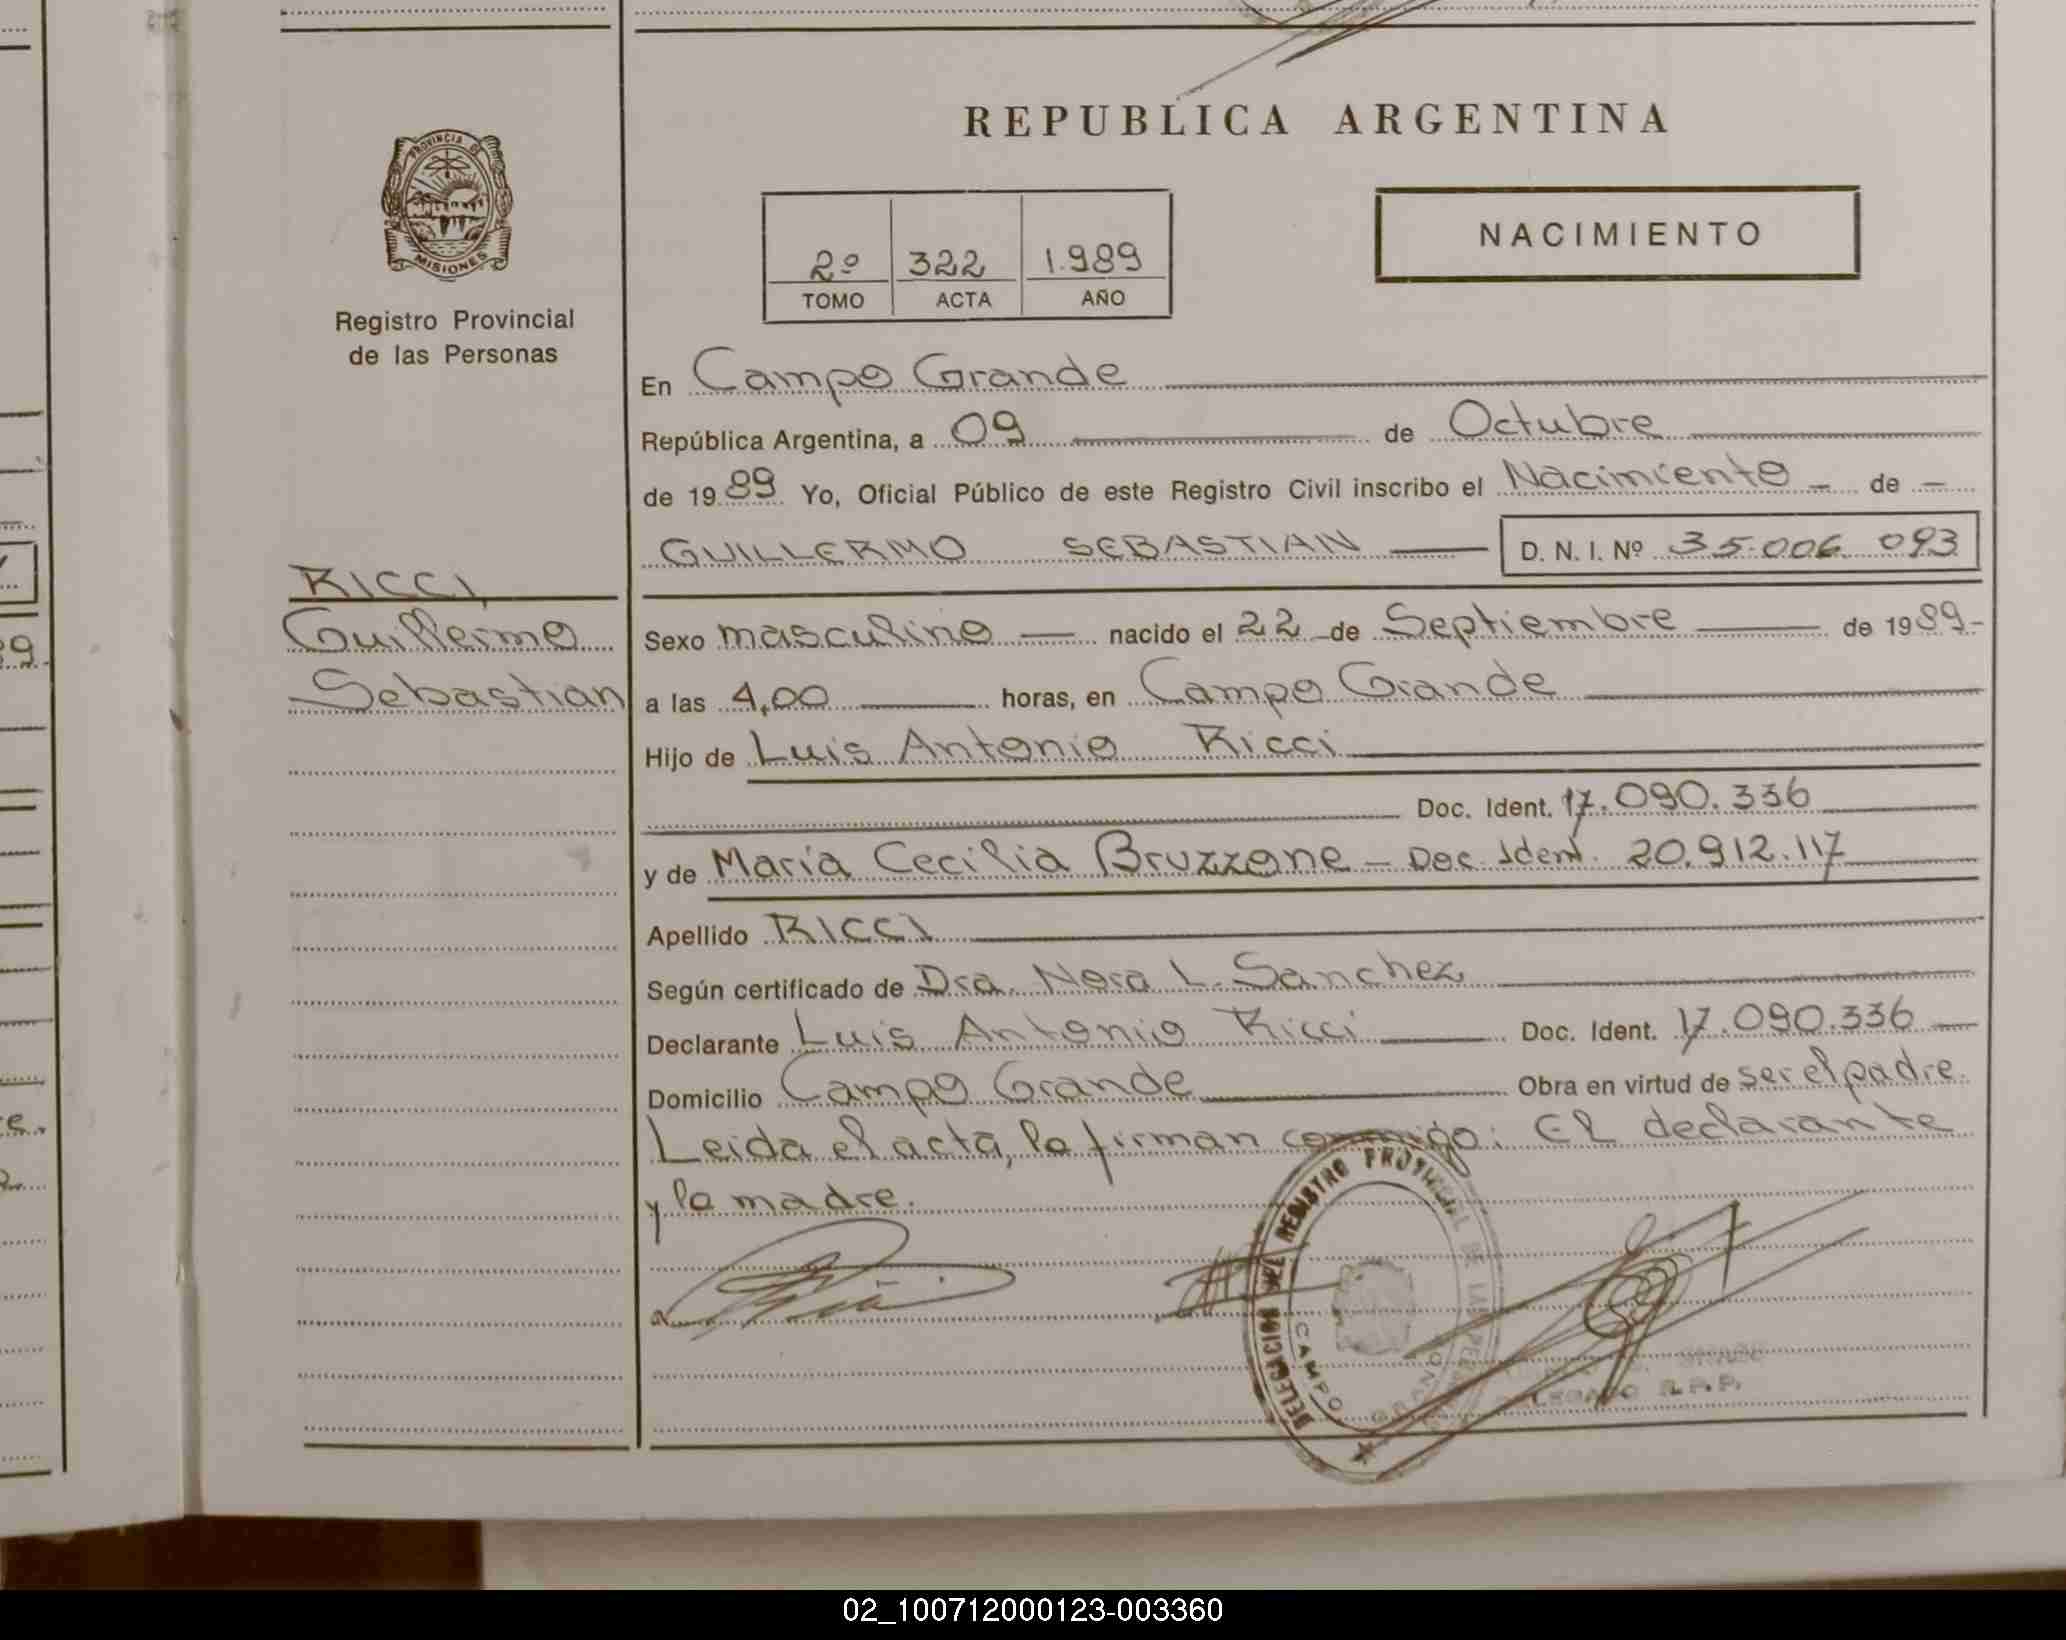 REPUBLICA ARGENTINA
PROVINCIA DE
MISIONES
Registro Provincial
de las Personas
2º 322 1.989
TOMO ACTA AÑO
NACIMIENTO
En Campo Grande
República Argentina, a 09 de Octubre
de 1989 Yo, Oficial Público de este Registro Civil inscribo el Nacimiento - de -
GUILLERMO SEBASTIAN D. N. I. Nº 35.006.093
RICCI,
Guillermo
Sebastian
Sexo masculino nacido el 22 de Septiembre de 1989-
a las 4,00 horas, en Campo Grande
Hijo de Luis Antonio Ricci
Doc. Ident. 17.090.336
y de María Cecilia Bruzzone - Doc. Ident. 20.912.117
Apellido RICCI
Según certificado de Dra. Nora L. Sanchez
Declarante Luis Antonio Ricci Doc. Ident. 17.090.336
Domicilio Campo Grande Obra en virtud de ser el padre.
Leida el acta, la firman conmigo: El declarante
y la madre.
DELEGACION DEL REGISTRO PROVINCIAL DE LAS PERSONAS
CAMPO GRANDE
R.P.P.
02_100712000123-003360